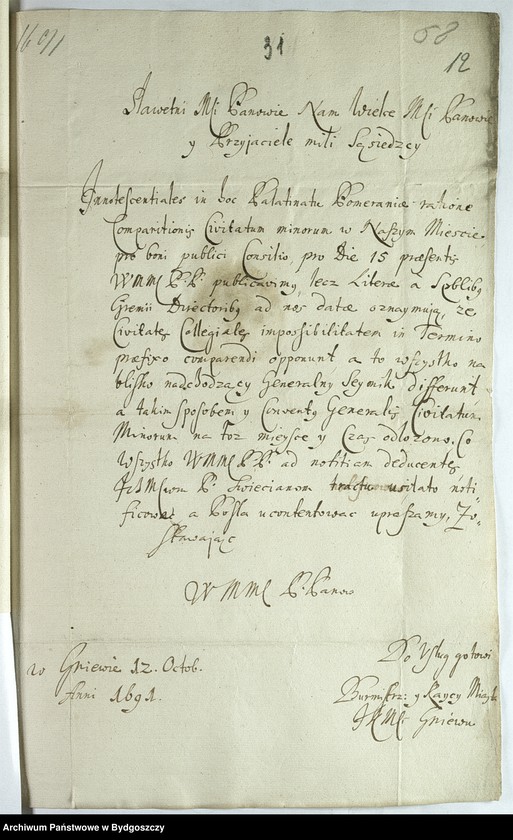 1691
31
58
12
Sławetni Mści Panowie Nam Wielce Mści Panowie
y Przyjaciele mili Sąsiedzcy
Innotescentiales in hoc Palatinatu Pomeraniæ ratione
Comparitionis Civitatum minorum w Naszym Miescie
pro boni publici Consilio, pro Die 15 præsentis
WMM PP. publicavimus, lecz Literæ a
Gremii Directoribus ad nos datæ oznaymują, ze
Civitates Collegiales impossibilitatem in Termino
præfixo comparendi opponunt a to wszystko na
blisko nadchodzący Generalny Seymik differunt
a takim sposobem y Conventus Generalis Civitatum
Minorum na toz mieysce y Czas odłozono. Co
Wszystko WMM PP. ad notitiam deducentes
P. Swiecianom usitato noti
ficowac a Posła ucontentowac upraszamy, Zo
stawaiąc
WMM P. Panow
w Gniewie 12. Octob.
Anni 1691.
Do Usług gotowi
Burmistrz: y Raycy Miasta
JKMści Gniewu
Archiwum Państwowe w Bydgoszczy